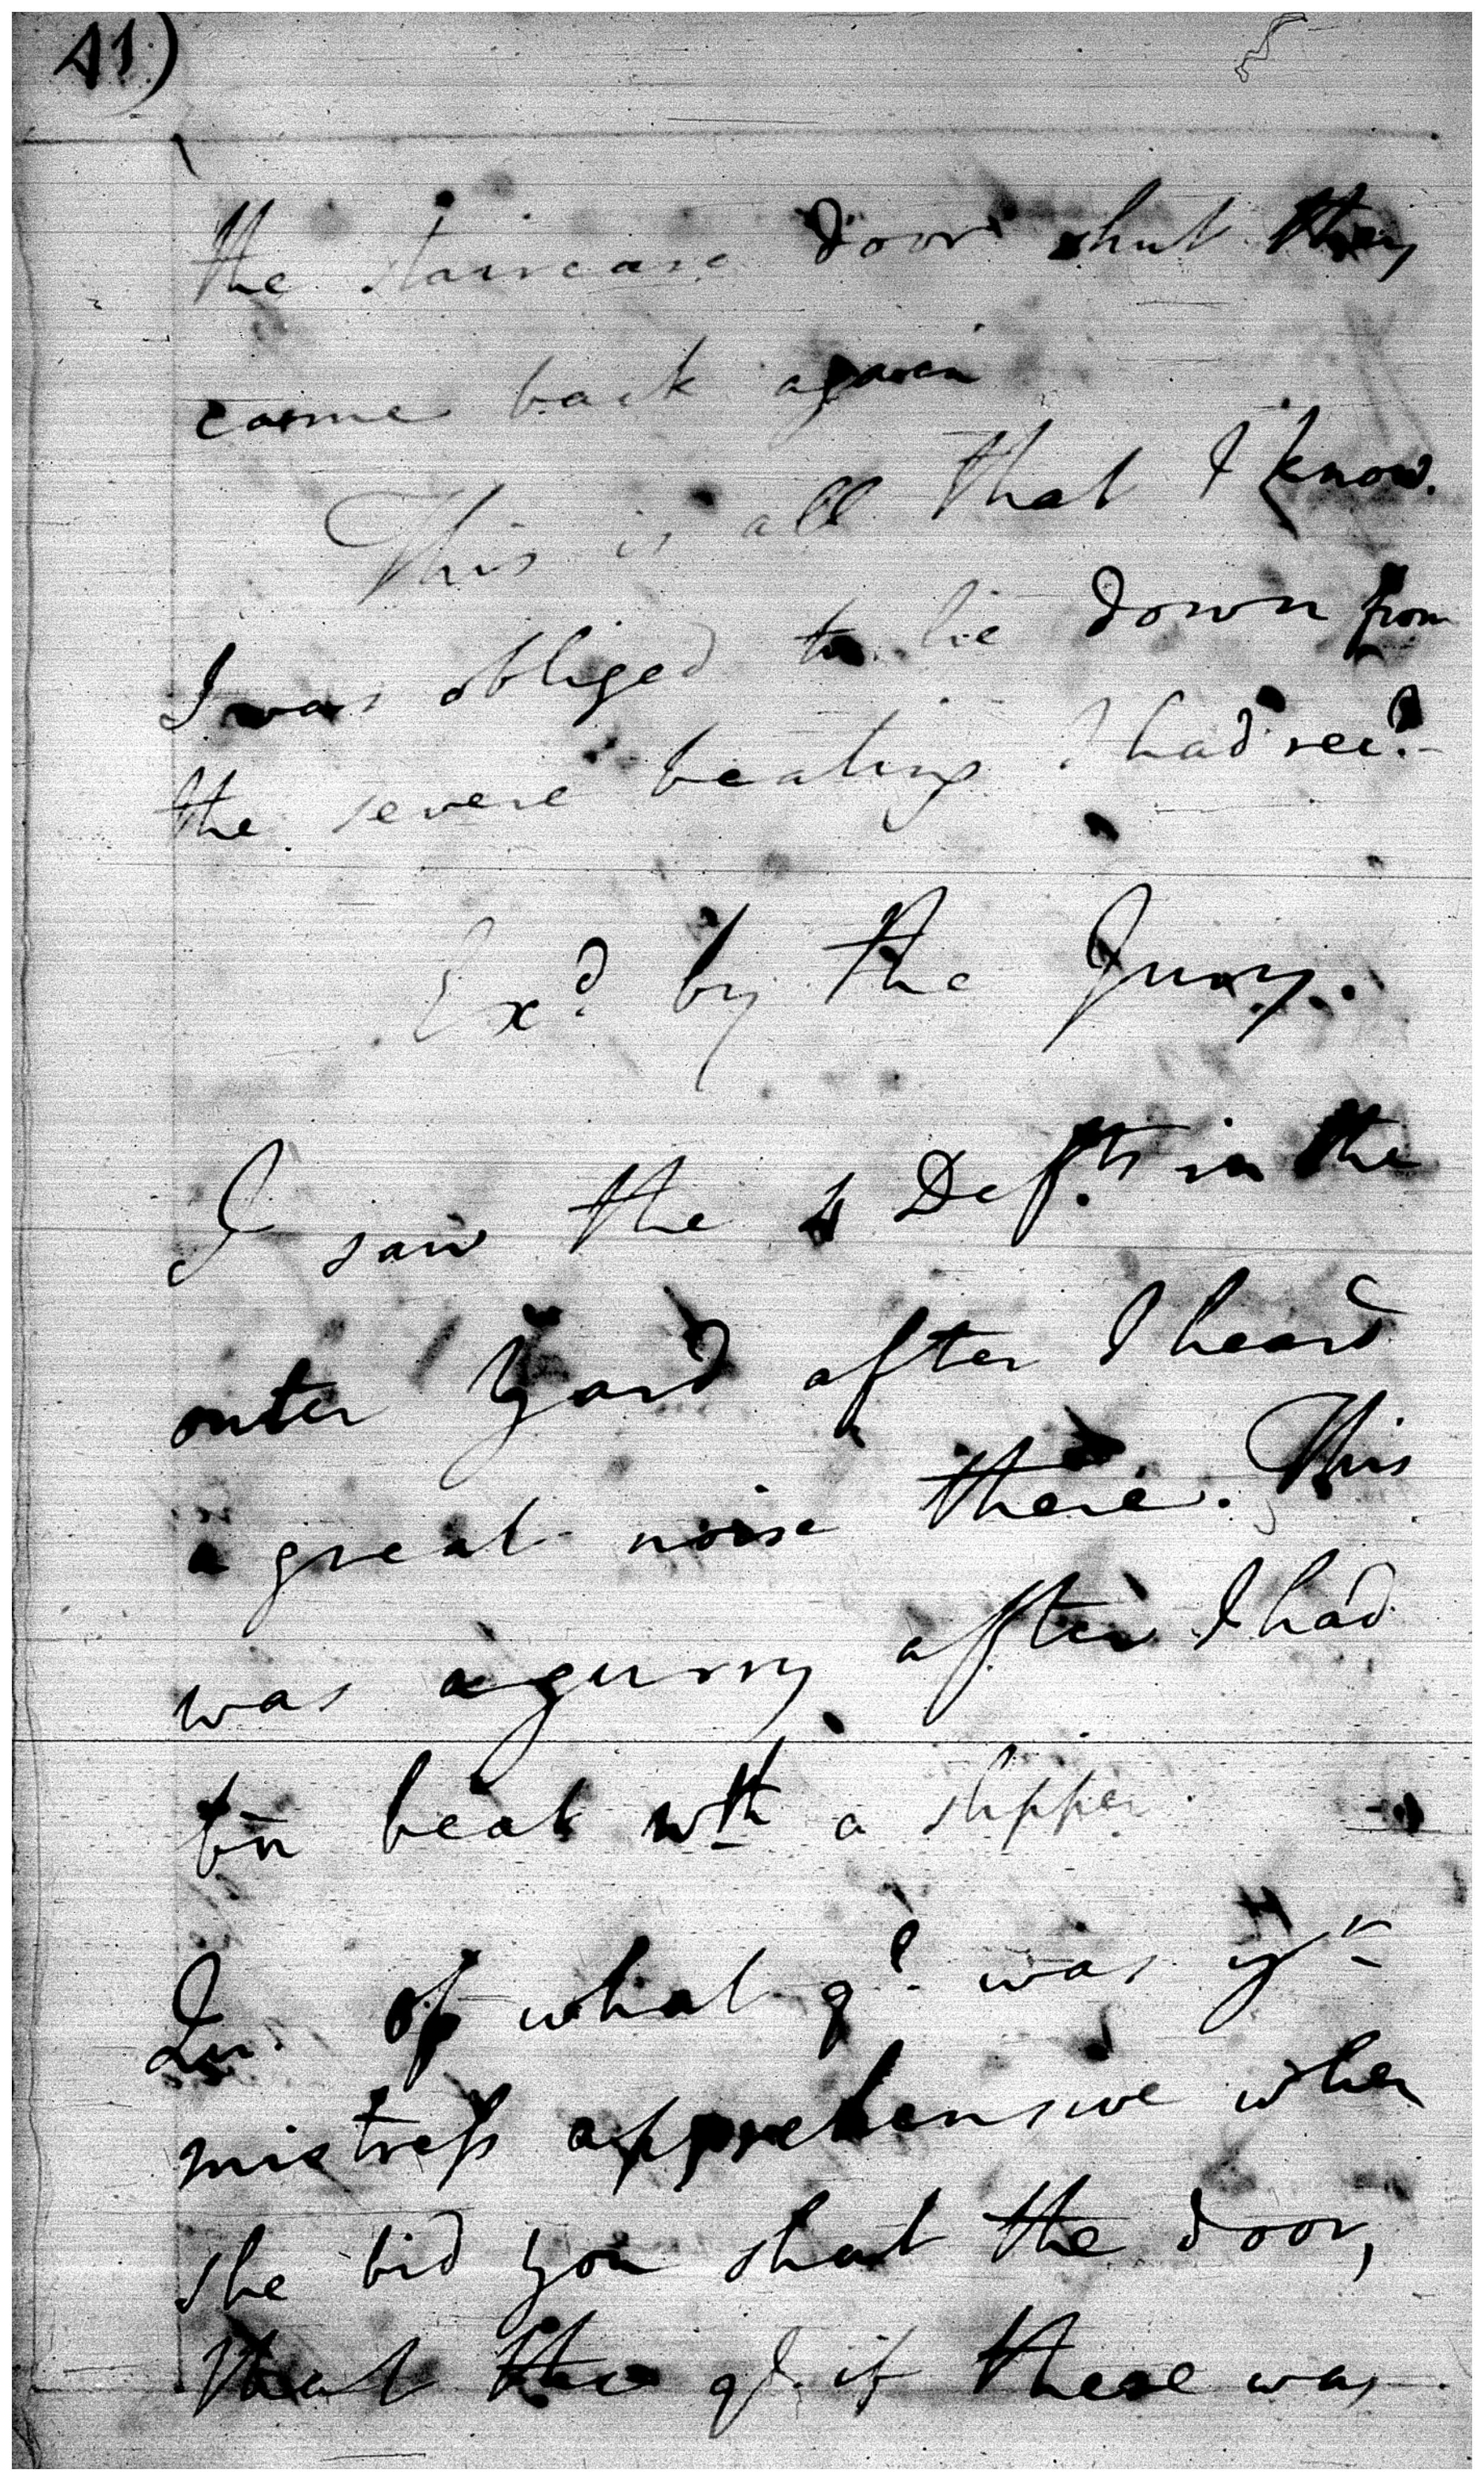 41)
the staircase door shut they
came back again
This is all that I know.
I was obliged to lie down from
the severe beating I had rec.d
Ex.d by the Jury.
I saw the 4 Defts in the
outer Yard after I heard
a great noise there. This
was a gurry after I had
bn beat wth a slipper
Qu. of what q.d was yr
mistress apprehensive when
she bid you shut the door,
that they qd. if there was